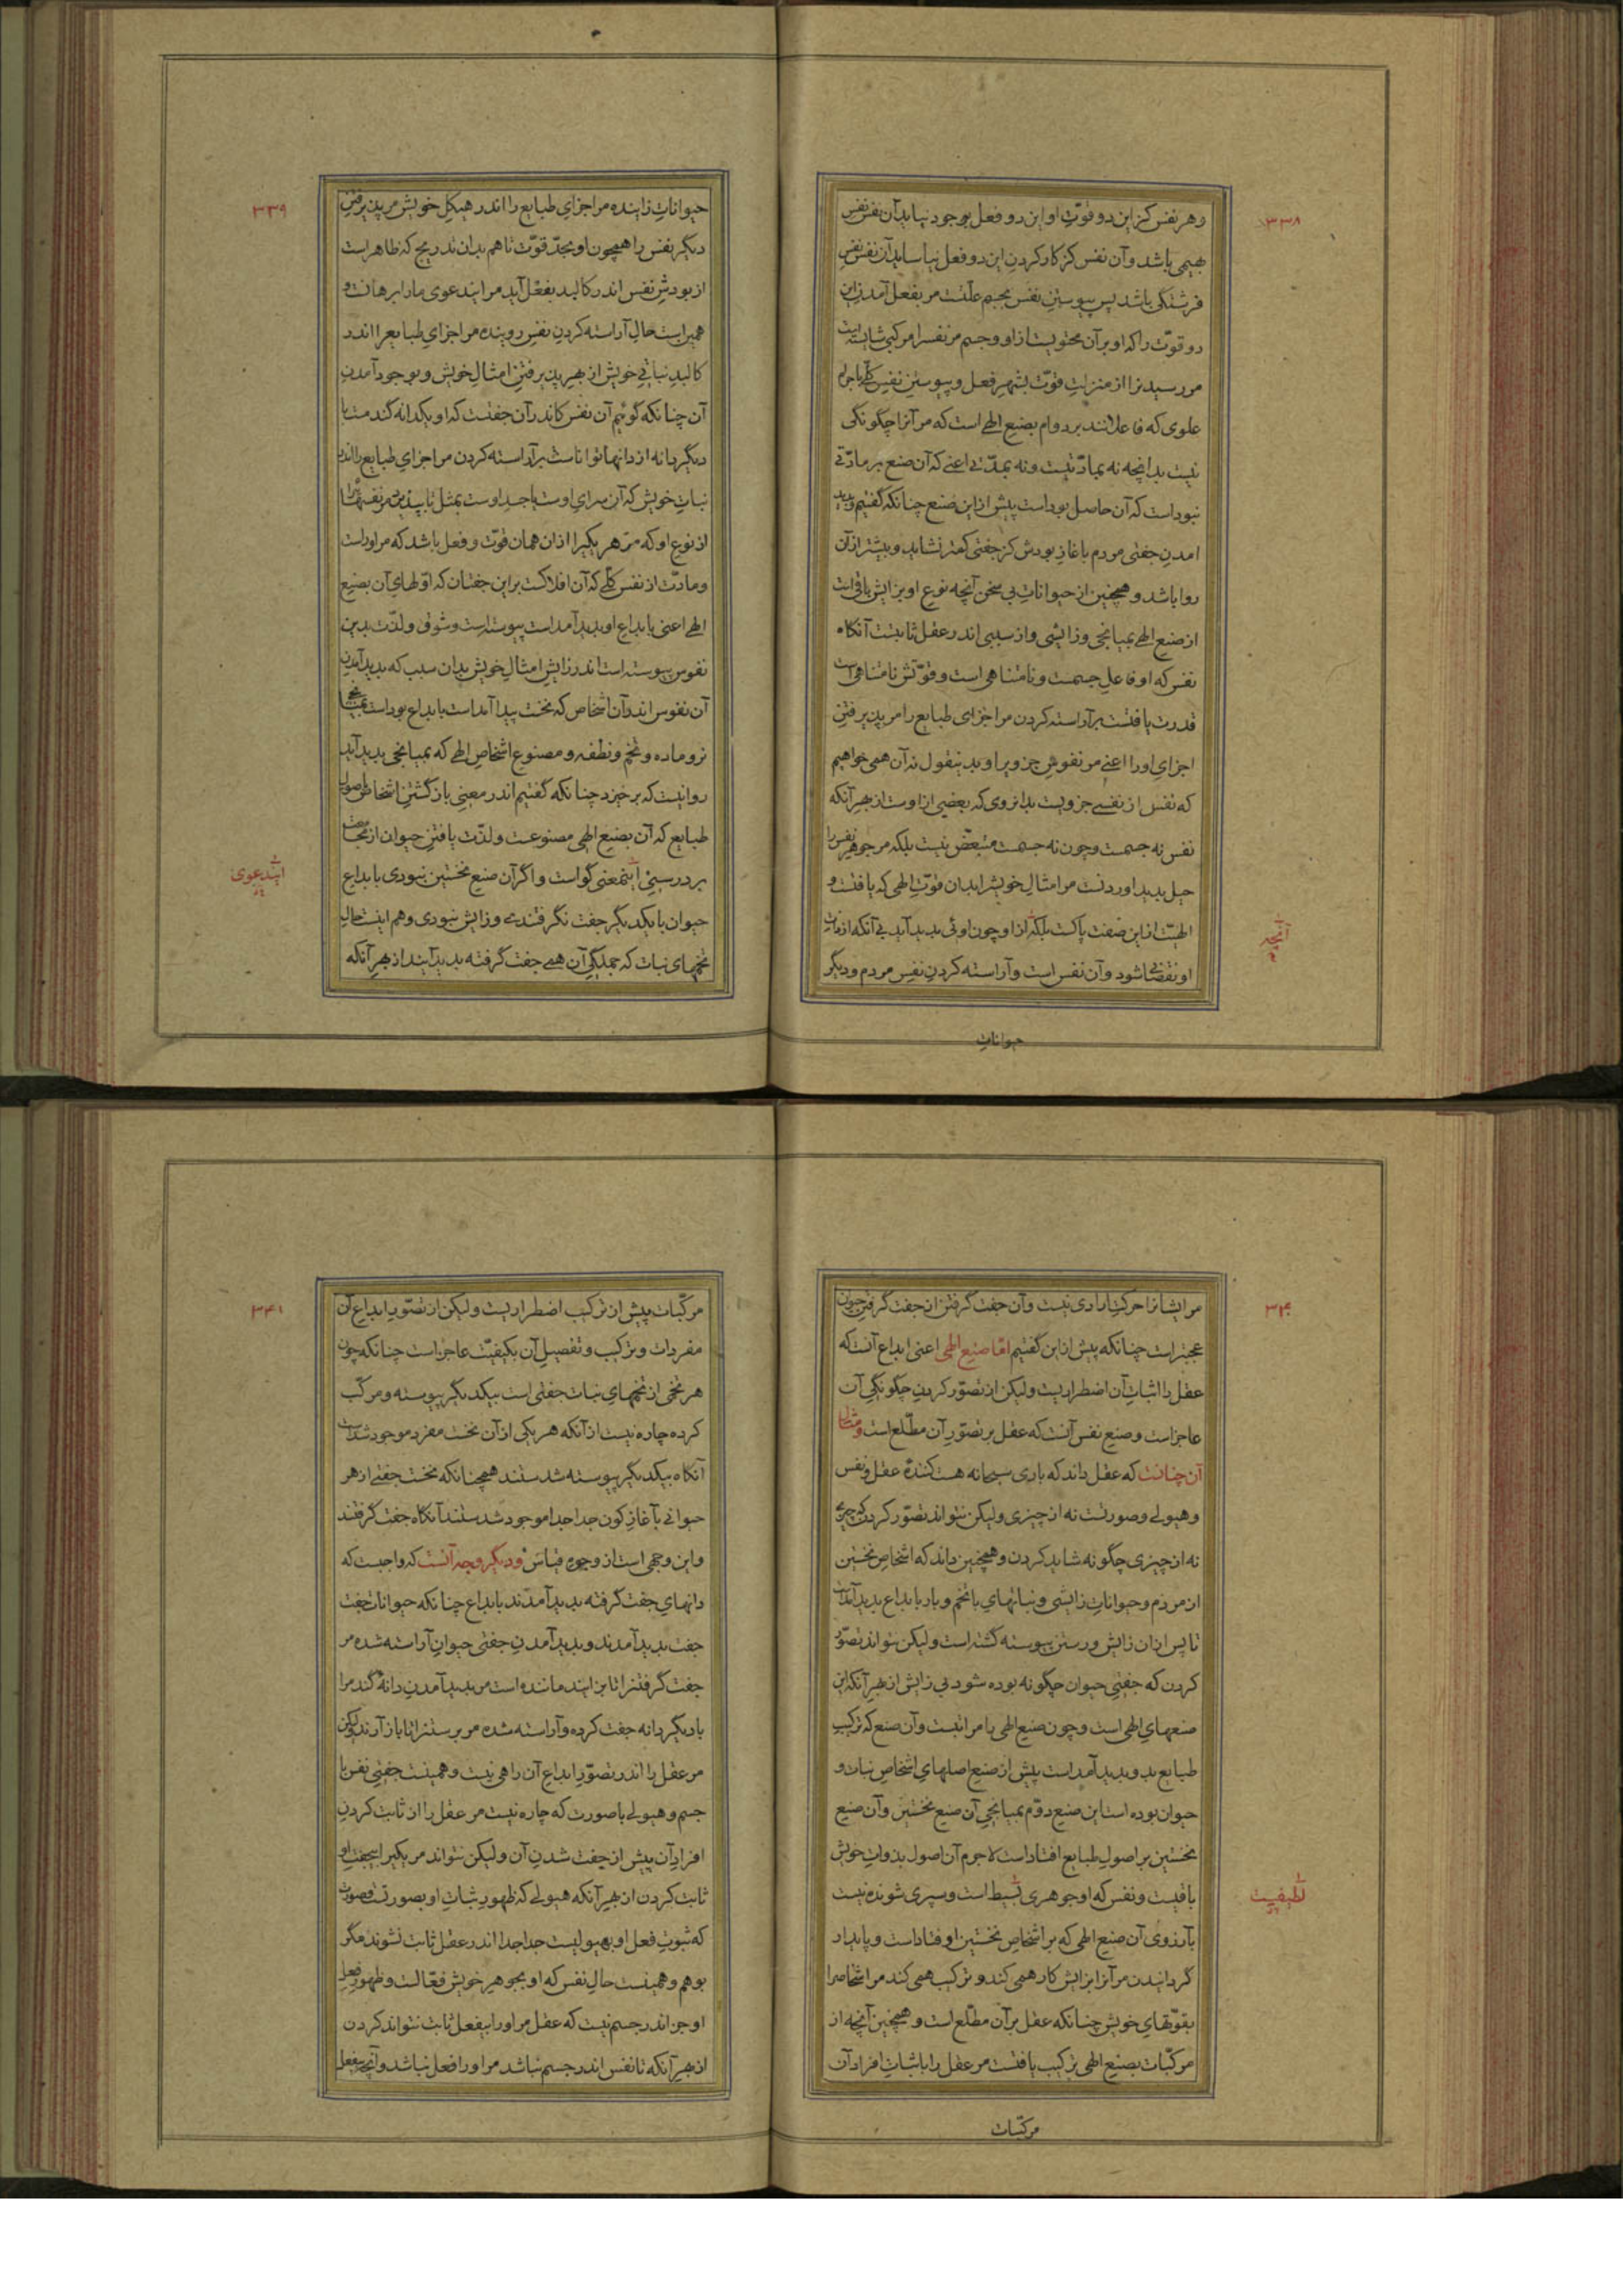 ۳۳۸
و هر نفس کز این دو قوّتِ او این دو فعل بوجود نیاید آن نفس نفسِ
بهیمی باشد و آن نفس کز کار کردنِ این دو فعل نیاساید آن نفس نفسِ
فرشتگی باشد پس پیوستنِ نفس بجسم علّتست مر بفعل آمدنِ این
دو قوّت را که او بر آن محتویست از او و جسم مر نفس را مرکبی شایسته است
مر رسیدنرا از منزلتِ قوّت بشهرِ فعل و پیوستنِ نفسِ کلّی باجرام
علوی که فاعلانند بر دوام بصنع الهی است که مر آنرا چگونگی
نیست بدانچه نه بمادّتیست و نه بمدّتی اعنی که آن صنع بر مادّتی
نبوداست که آن حاصل بوداست پیش از این صنع چنانکه گفتیم و پدید
امدنِ جفتی مردم باغازِ بودش کز جفتی کمتر نشاید و بیشتر از آن
روا باشد و همچنین از حیواناتِ بی سخن آنچه نوعِ او بزایش باقی است
از صنع الهی بمیانجی و زایشی و از سببی اندر عقل ثابتست آنکاه
نفس که او فاعلِ جسمست و نامتناهی است و قوّتش نامتناهی است
قدرت یافتست بر آراسته کردن مر اجزای طبایع را مر پذیرفتنِ
اجزایِ او را اعنی مر نفوسِ جزویرا و بدینقول نه آن همی خواهیم
که نفس از نفسی جزویست بدانروی که بعضی از اوست از بهرِ آنکه
نفس نه جسمست و چون نه جسمست متبعّض نیست بلکه مر جوهرِ نفس را
حیل پدید اوردنست مر امثالِ خویشرا بدان قوّتِ الهی که یافتست و
الهیّت از این صفت پاکست بلکه از او چون اوئی پدید آید بی آنکه از ذاتِ
او نقصی شود و آن نفس است و آراسته کردنِ نفسِ مردم و دیگر
آنچه
حیواناتِ
۳۳۹
حیواناتِ زاینده مر اجزایِ طبایع را اندر هیکلِ خویش مر پذیرفتنِ
دیگر نفس را همچون او بحدّ قوّت تا هم بدان تدریج که ظاهر است
از بودشِ نفس اندر کالبد بفعل آید مر ایندعوی ما را برهانست و
همین است حالِ آراسته کردنِ نفسِ روینده مر اجزایِ طبایعرا اندر
کالبدِ نباتیِ خویش از بهرِ پذیرفتنِ امثالِ خویش و بوجود آمدنِ
آن چنانکه گوئیم آن نفس کاندر آن جفتست که او یکدانه گندمست با
دیگر دانه از دانها توانا است بر آراسته کردن مر اجزایِ طبایع را اندر
نباتِ خویش که آن سرایِ اوست یا جسدِ اوست بمثل تا بپذیرد مر نفسها را
از نوعِ او که مر هر یکیرا از ان همان قوّت و فعل باشد که مر اوراست
و مادّت از نفس کلّی که آن افلاکست بر این جفتان که اوّلهایِ آن بصنعِ
الهی اعنی بابداع او پدید آمداست پیوسته است و شوق و لذّت بدین
نفوس پیوسته است اندر زایشِ امثالِ خویش بدان سبب که پدید آمدنِ
آن نفوس اندر آن اشخاص که نخست پیدا آمداست بابداع بوداست بمیانجی
نر و ماده و تخم و نطفه و مصنوعِ اشخاصِ الهی که بمیانجی پدید آید
روا نیست که بر خیزد چنانکه گفتیم اندر معنیِ باز گشتنِ اشخاص باصولِ
طبایع که آن بصنع الهی مصنوعست و لذّت یافتنِ حیوان از مجامعت
بر درستیِ اینمعنی گواست و اگر آن صنعِ نخستین نبودی بابداع
حیوان با یکدیگر جفت نگرفتندی و زایش نبودی و هم اینست حالِ
تخمهای نبات که جملگیِ آن همی جفت گرفته پدید آیند از بهرِ آنکه
ایندعوی
۳۴۰
مر ایشانرا حرکتِ ارادی نیست و آن جفت گرفتن از جفت گرفتنِ حیوان
عجیبتر است چنانکه پیش از این گفتیم امّا صنعِ الهی اعنی ابداع آنست که
عقل را اثباتِ آن اضطراریست ولیکن از تصوّر کردنِ چگونگیِ آن
عاجز است و صنعِ نفس آنست که عقل بر تصوّرِ آن مطّلع است و مثالِ
آن چنانست که عقل داند که باری سبحانه هست کنندهٔ عقل و نفس
و هیولی و صورتست نه از چیزی ولیکن نتواند تصوّر کردن که چیزی
نه از چیزی چگونه شاید کردن و همچنین داند که اشخاصِ نخستین
از مردم و حیواناتِ زایشی و نباتهایِ با تخم و بار بابداع پدید آمداست
تا پس از ان زایش و رستن پیوسته گشته است ولیکن نتواند تصوّر
کردن که جفتیِ حیوان چگونه بوده شود بی زایش از بهرِ آنکه این
صنعهایِ الهی است و چون صنع الهی با مرا نیست و آن صنع که ترکیبِ
طبایع بدو پدید آمداست پیش از صنعِ اصلهایِ اشخاصِ نبات و
حیوان بوده است این صنعِ دوّم بمیانجیِ آن صنعِ نخستین و آن صنعِ
نخستین بر اصولِ طبایع افتاداست لاجرم آن اصول بذواتِ خویش
باقیست و نفس که او جوهری بسیط است و سپری شونده نیست
بآرزوی آن صنعِ الهی که بر اشخاصِ نخستین اوفتاداست و پایدار
گردانیدن مر آنرا بزایش کار همی کند و ترکیب همی کند مر اشخاصرا
بقوّتهایِ خویش چنانکه عقل بر آن مطّلع است و همچنین آنچه از
مرکّبات بصنعِ الهی ترکیب یافتست مر عقل را باثباتِ افرادِ آن
مرکّبات
۳۴۱
مرکّبات پیش از ترکیب اضطراریست ولیکن از تصوّرِ ابداعِ آن
مفردات و ترکیب و تفصیلِ آن بکیفیّت عاجز است چنانکه چون
هر تخمی از تخمهایِ نبات جفتی است بیکدیگر پیوسته و مرکّب
کرده چاره نیست از آنکه هر یکی از آن نخست مفرد موجود شداست
آنگاه بیکدیگر پیوسته شدستند همچنانکه نخست جفتی از هر
حیوانی بآغازِ کون جدا جدا موجود شدستند آنگاه جفت گرفتند
و این وجهی است از وجوه قیاس و دیگر وجه آنست که واجبست که
دانهایِ جفت گرفته پدید آمدند بابداع چنانکه حیوانات جفت
جفت پدید آمدند و پدید آمدنِ جفتی حیوانِ آراسته شده مر
جفت گرفتنرا تا بزایند ماننده است مر پدید آمدنِ دانهٔ گندم را
با دیگر دانه جفت کرده و آراسته شده مر برستنرا تا باز آرند ولیکن
مر عقل را اندر تصوّرِ ابداعِ آن راهی نیست و همینست جفتیِ نفس با
جسم و هیولی با صورت که چاره نیست مر عقل را از ثابت کردنِ
افرادِ آن پیش از جفت شدنِ آن ولیکن نتواند مر یکیرا بیجفتِ او
ثابت کردن از بهرِ آنکه هیولی که ظهورِ ثباتِ او بصورتست و صورت
که ثبوتِ فعلِ او بهیولیست جدا جدا اندر عقل ثابت نشوند مگر
بوهم و همینست حالِ نفس که او بجوهرِ خویش فعّالست و ظهورِ فعلِ
او جز اندر جسم نیست که عقل مر اورا بیفعل ثابت نتواند کردن
از بهرِ آنکه تا نفس اندر جسم نباشد مر او را فعل نباشد و آنچه بیفعل